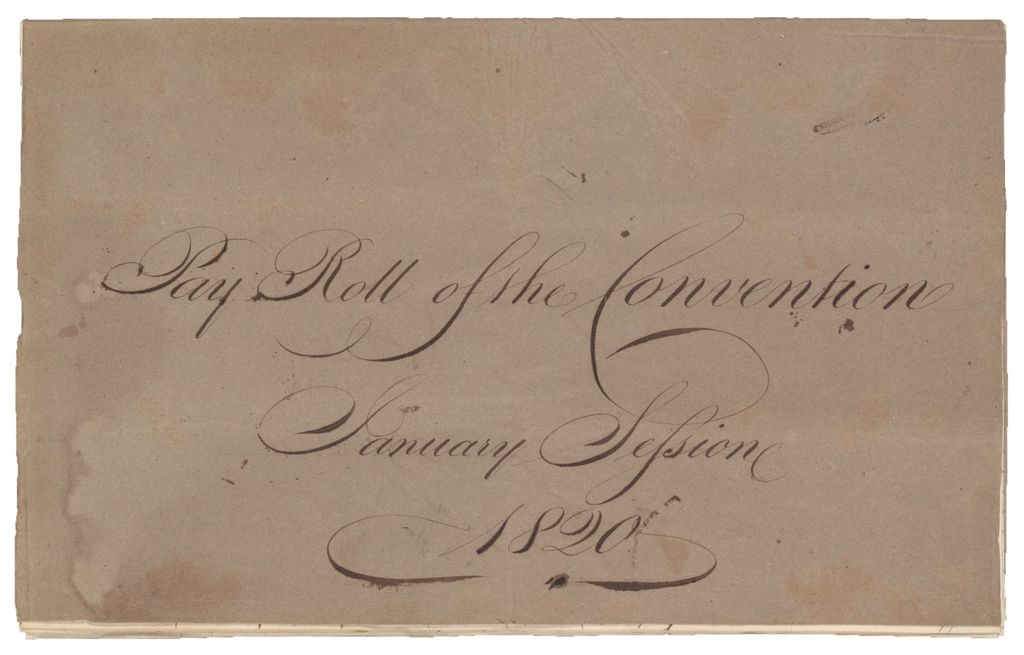 Pay Roll of the Convention
January Session
1820